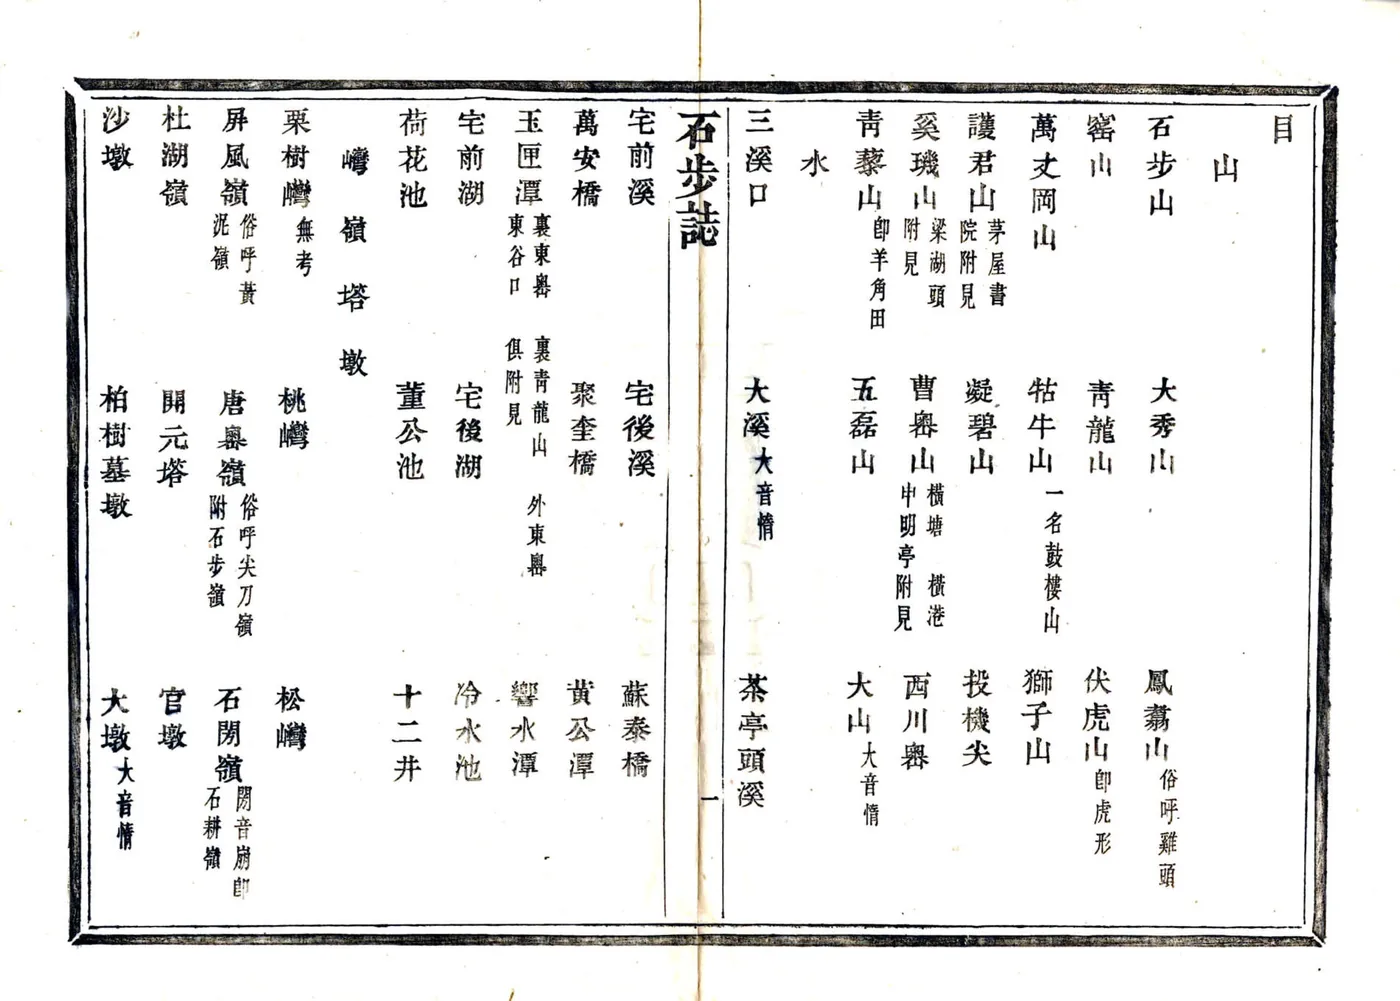 目
山
石步山 大秀山 鳳翥山俗呼雞頭
窰山 青龍山 伏虎山卽虎形
萬丈岡山 牯牛山一名鼓樓山 獅子山
護君山茅屋書院附見 凝碧山 投機尖
奚璣山梁湖頭附見 曹嶴山橫塘 橫港 申明亭附見 西川嶴
青藜山卽羊角田 五磊山 大山大音惰
水
三溪口 大溪大音惰 茶亭頭溪
石步誌 一
宅前溪 宅後溪 蘇泰橋
萬安橋 聚奎橋 黃公潭
玉匣潭裏東嶴 裏青龍山 外東嶴 東谷口 俱附見 響水潭
宅前湖 宅後湖 冷水池
荷花池 董公池 十二井
巒嶺塔墩
栗樹巒無考 桃巒 松巒
屏風嶺俗呼黃泥嶺 唐嶴嶺俗呼尖刀嶺附石步嶺 石閍嶺閍音崩卽石耕嶺
杜湖嶺 開元塔 官墩
沙墩 柏樹墓墩 大墩大音惰